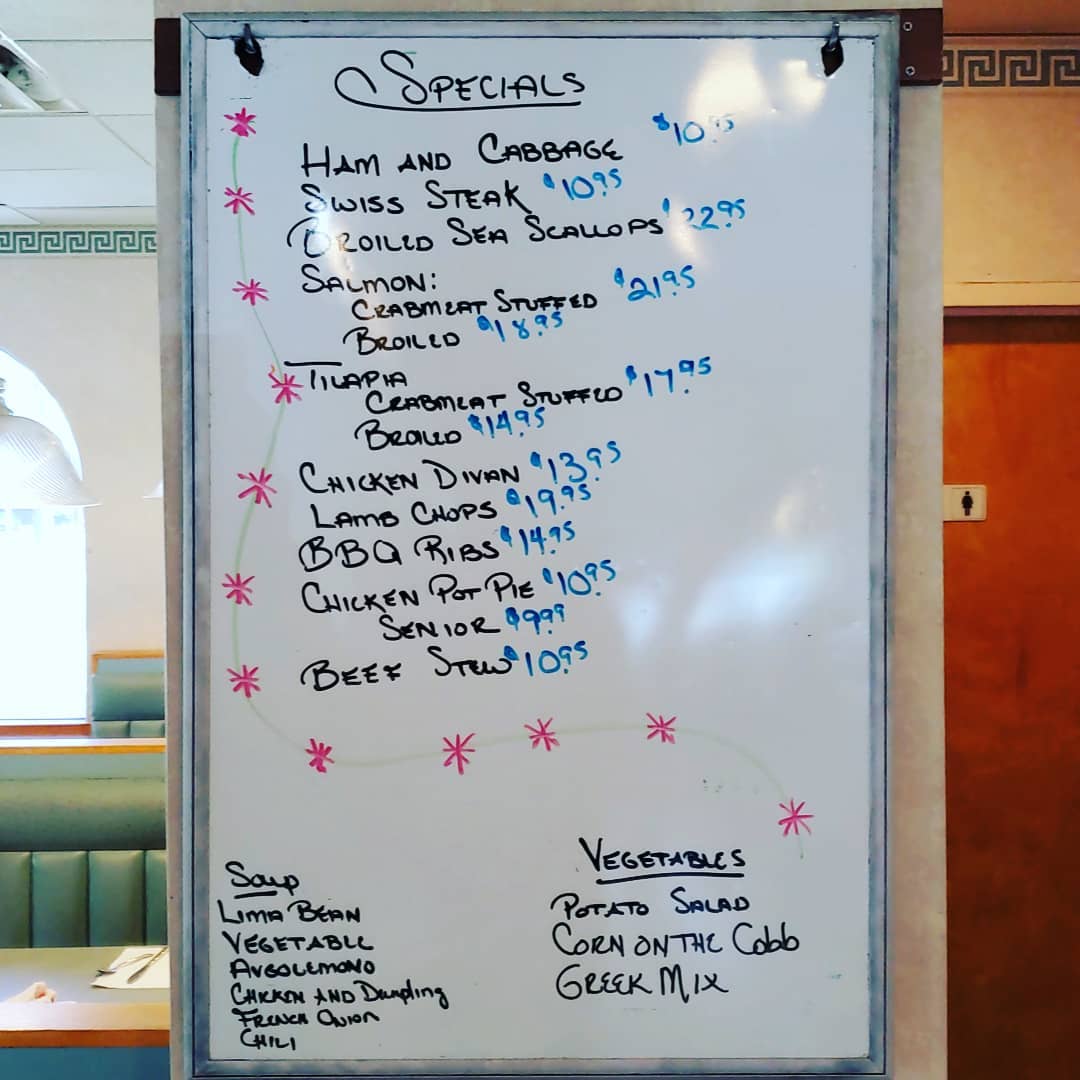 SPECIALS
HAM AND CABBAGE $10.95
SWISS STEAK $10.95
BROILED SEA SCALLOPS $22.95
SALMON:
CRABMEAT STUFFED $21.95
BROILED $18.95
TILAPIA
CRABMEAT STUFFED $17.95
BROILED $14.95
CHICKEN DIVAN $13.95
LAMB CHOPS $19.95
BBQ RIBS $14.95
CHICKEN POT PIE $10.95
SENIOR $9.99
BEEF STEW $10.95
Soup
LIMA BEAN
VEGETABLE
AVGOLEMONO
CHICKEN AND Dumpling
FRENCH ONION
CHILI
VEGETABLES
POTATO SALAD
CORN ON THE Cobb
GREEK MIX